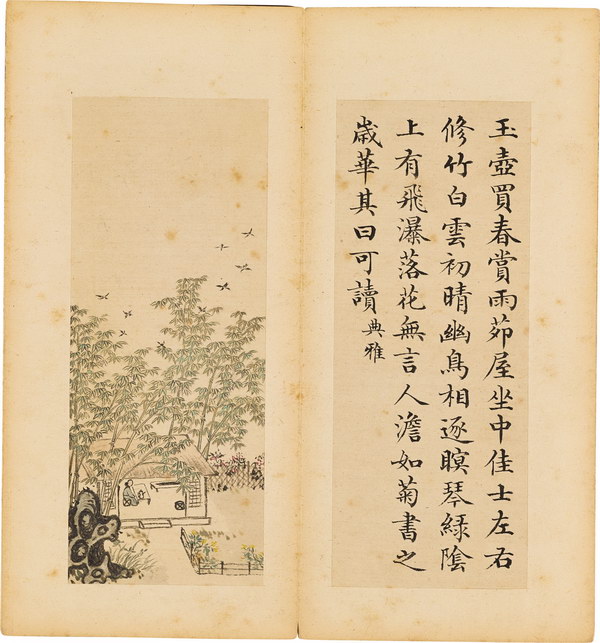 玉壺買春賞雨茆屋坐中佳士左右
修竹白雲初晴幽鳥相逐瞑琴綠陰
上有飛瀑落花無言人澹如菊書之
歲華其曰可讀 典雅